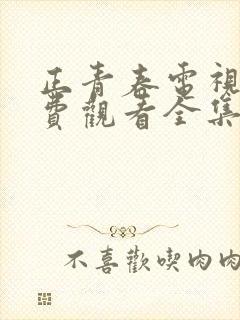 正青春電視
費觀看全集
不喜歡喫肉肉